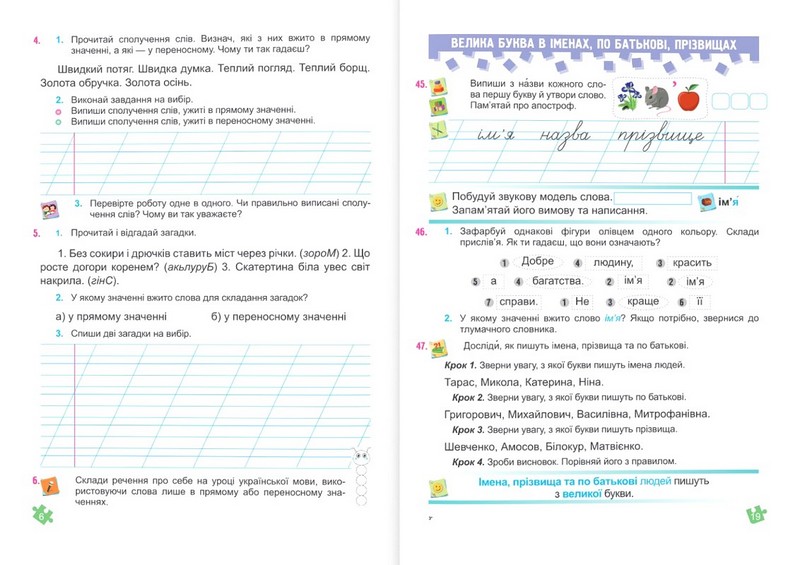 4. 1. Прочитай сполучення слів. Визнач, які з них вжито в прямому
значенні, а які — у переносному. Чому ти так гадаєш?
Швидкий потяг. Швидка думка. Теплий погляд. Теплий борщ.
Золота обручка. Золота осінь.
2. Виконай завдання на вибір.
Випиши сполучення слів, ужиті в прямому значенні.
Випиши сполучення слів, ужиті в переносному значенні.
3. Перевірте роботу одне в одного. Чи правильно виписані сполу-
чення слів? Чому ви так уважаєте?
5. 1. Прочитай і відгадай загадки.
1. Без сокири і дрючків ставить міст через річки. (зороМ) 2. Що
росте догори коренем? (акьлуруБ) 3. Скатертина біла увес світ
накрила. (гінС).
2. У якому значенні вжито слова для складання загадок?
а) у прямому значенні б) у переносному значенні
3. Спиши дві загадки на вибір.
6. Склади речення про себе на уроці української мови, вико-
ристовуючи слова лише в прямому або переносному зна-
ченнях.
6
ВЕЛИКА БУКВА В ІМЕНАХ, ПО БАТЬКОВІ, ПРІЗВИЩАХ
45. Випиши з на́зви кожного сло-
ва першу букву й утвори слово.
Пам'ятай про апостроф.
ім'я назва прізвище
Побудуй звукову модель слова.
ім'я́
Запам'ятай його вимову та написання.
46. 1. Зафарбуй однакові фігури олівцем одного кольору. Склади
прислів'я. Як ти гадаєш, що вони означають?
1 Добре 4 людину, 3 красить
5 а 4 багатства. 2 ім'я 2 ім'я
7 справи. 1 Не 3 краще 6 її
2. У якому значенні вжито слово ім'я? Якщо потрібно, звернися до
тлумачного словника.
47. Досліди́, як пишуть імена, прізвища та по батькові.
Крок 1. Зверни увагу, з якої букви пишуть імена людей.
Тарас, Микола, Катерина, Ніна.
Крок 2. Зверни увагу, з якої букви пишуть по батькові.
Григорович, Михайлович, Василівна, Митрофанівна.
Крок 3. Зверни увагу, з якої букви пишуть прізвища.
Шевченко, Амосов, Білокур, Матвієнко.
Крок 4. Зроби висновок. Порівняй його з правилом.
Імена, прізвища та по батькові людей пишуть
з великої букви.
19